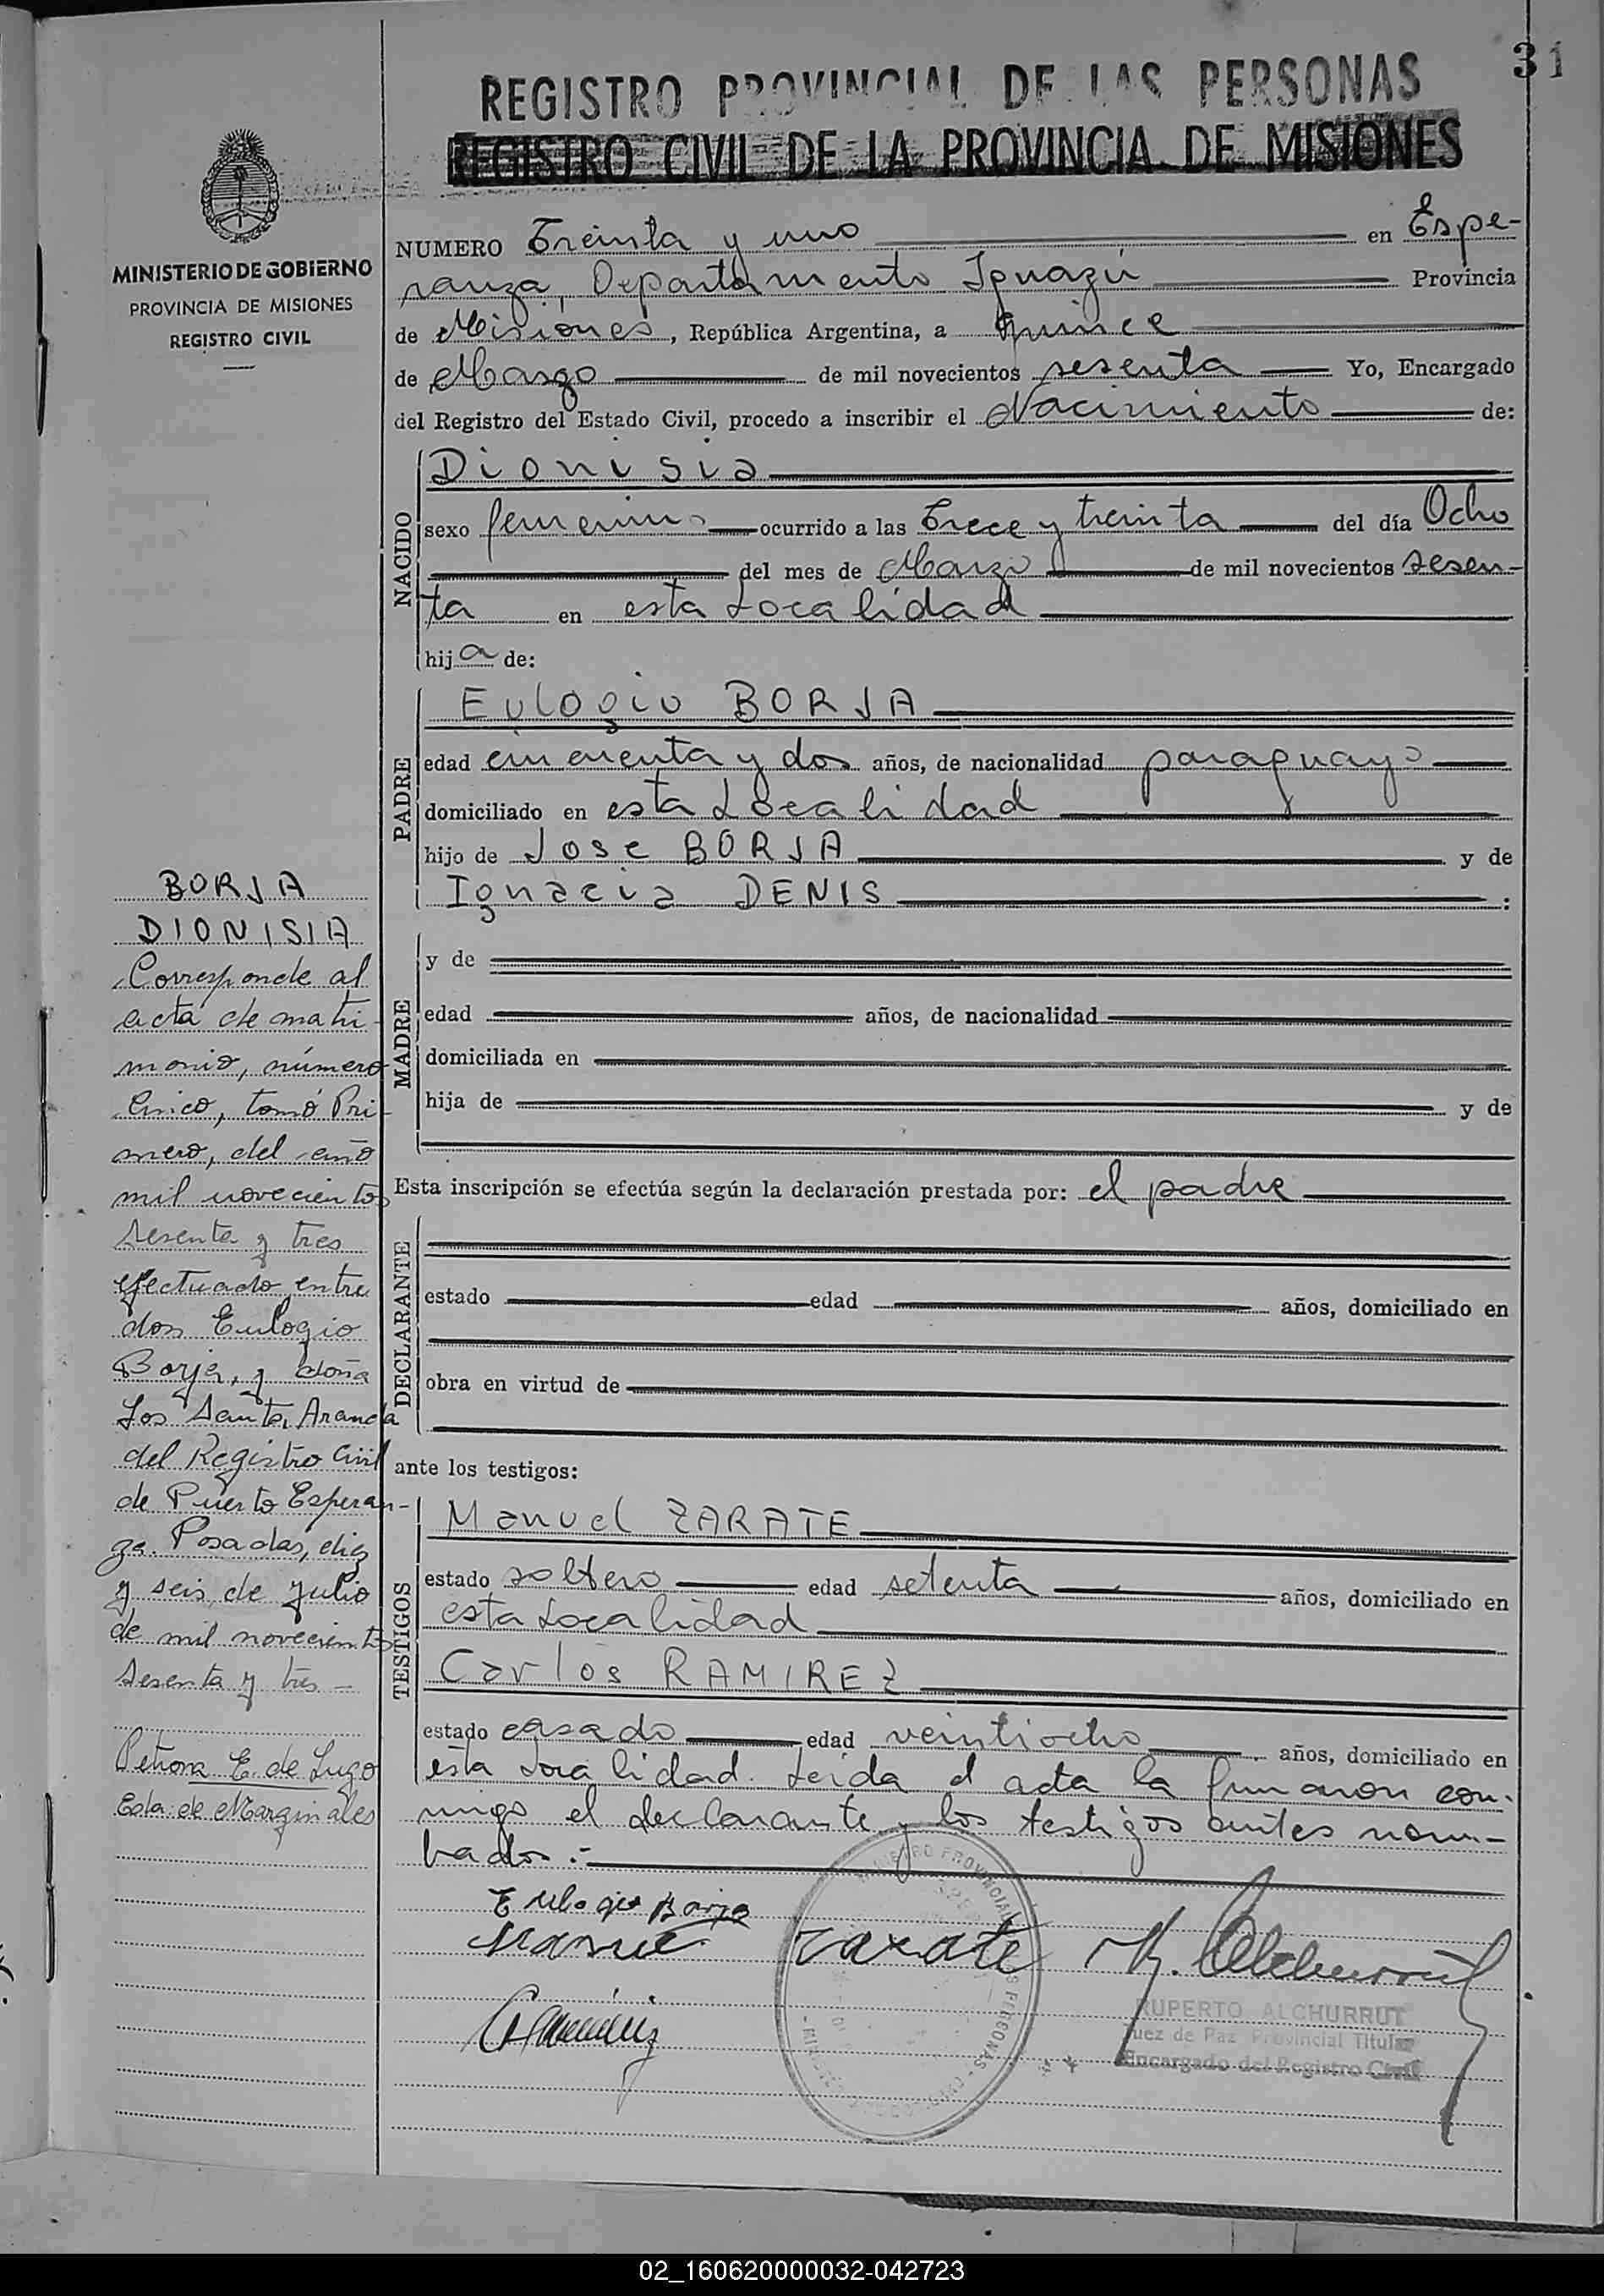 31
REGISTRO PROVINCIAL DE LAS PERSONAS
REGISTRO CIVIL DE LA PROVINCIA DE MISIONES
MINISTERIO DE GOBIERNO
PROVINCIA DE MISIONES
REGISTRO CIVIL
BORJA
DIONISIA
Corresponde al
acta de matri-
monio, número
Cinco, tomo Pri-
mero, del año
mil novecientos
sesenta y tres
efectuado entre
don Eulogio
Borja, y doña
Los Santos Aranda
del Registro Civil
de Puerto Esperan-
za. Posadas, diez
y seis de Julio
de mil novecientos
sesenta y tres -
Petrona E. de Lugo
Eda: de Marginales
NUMERO Treinta y uno en Espe-
ranza, Departamento Iguazú Provincia
de Misiones, República Argentina, a quince
de Marzo de mil novecientos sesenta Yo, Encargado
del Registro del Estado Civil, procedo a inscribir el Nacimiento de:
NACIDO
Dionisia
sexo femenino ocurrido a las Trece y treinta del día Ocho
del mes de Marzo de mil novecientos sesen-
ta en esta Localidad
hija de:
PADRE
Eulogio BORJA
edad cincuenta y dos años, de nacionalidad paraguayo
domiciliado en esta Localidad
hijo de Jose BORJA y de
Ignacia DENIS :
MADRE
y de
edad años, de nacionalidad
domiciliada en
hija de y de
Esta inscripción se efectúa según la declaración prestada por: el padre
DECLARANTE
estado edad años, domiciliado en
obra en virtud de
ante los testigos:
TESTIGOS
Manuel ZARATE
estado soltero edad setenta años, domiciliado en
esta Localidad
Carlos RAMIREZ
estado casado edad veintiocho años, domiciliado en
esta Localidad. Leida el acta la firmaron con-
migo el declarante y los testigos antes nom-
brados.-
Eulogio Borja
Manuel Zarate
RUPERTO ALCHURRUT
Juez de Paz Provincial Titular
Encargado del Registro Civil
02_160620000032-042723